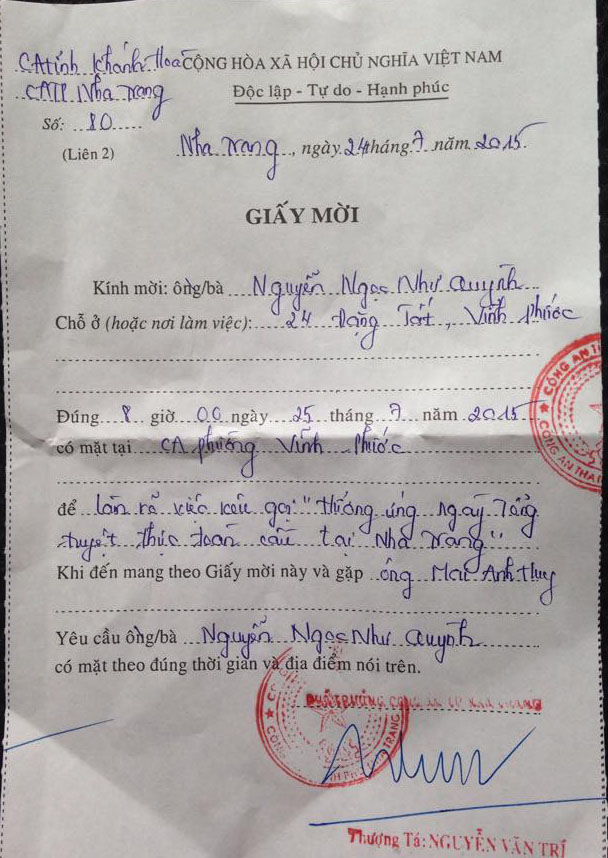 CA tỉnh Khánh Hoà CỘNG HÒA XÃ HỘI CHỦ NGHĨA VIỆT NAM
CATP Nha Trang Độc lập - Tự do - Hạnh phúc
Số: 80
(Liên 2) Nha Trang, ngày 24 tháng 7 năm 2015.
GIẤY MỜI
Kính mời: ông/bà Nguyễn Ngọc Như Quỳnh
Chỗ ở (hoặc nơi làm việc): 24 Đặng Tất, Vĩnh Phước
Đúng 8 giờ 00 ngày 25 tháng 7 năm 2015
có mặt tại CA phường Vĩnh Phước
để làm rõ việc kêu gọi "Hưởng ứng ngày Tổng
tuyệt thực toàn cầu tại Nha Trang"
Khi đến mang theo Giấy mời này và gặp ông Mai Anh Thuy
Yêu cầu ông/bà Nguyễn Ngọc Như Quỳnh
có mặt theo đúng thời gian và địa điểm nói trên.
PHÓ TRƯỞNG CÔNG AN TP NHA TRANG
Thượng Tá: NGUYỄN VĂN TRÍ